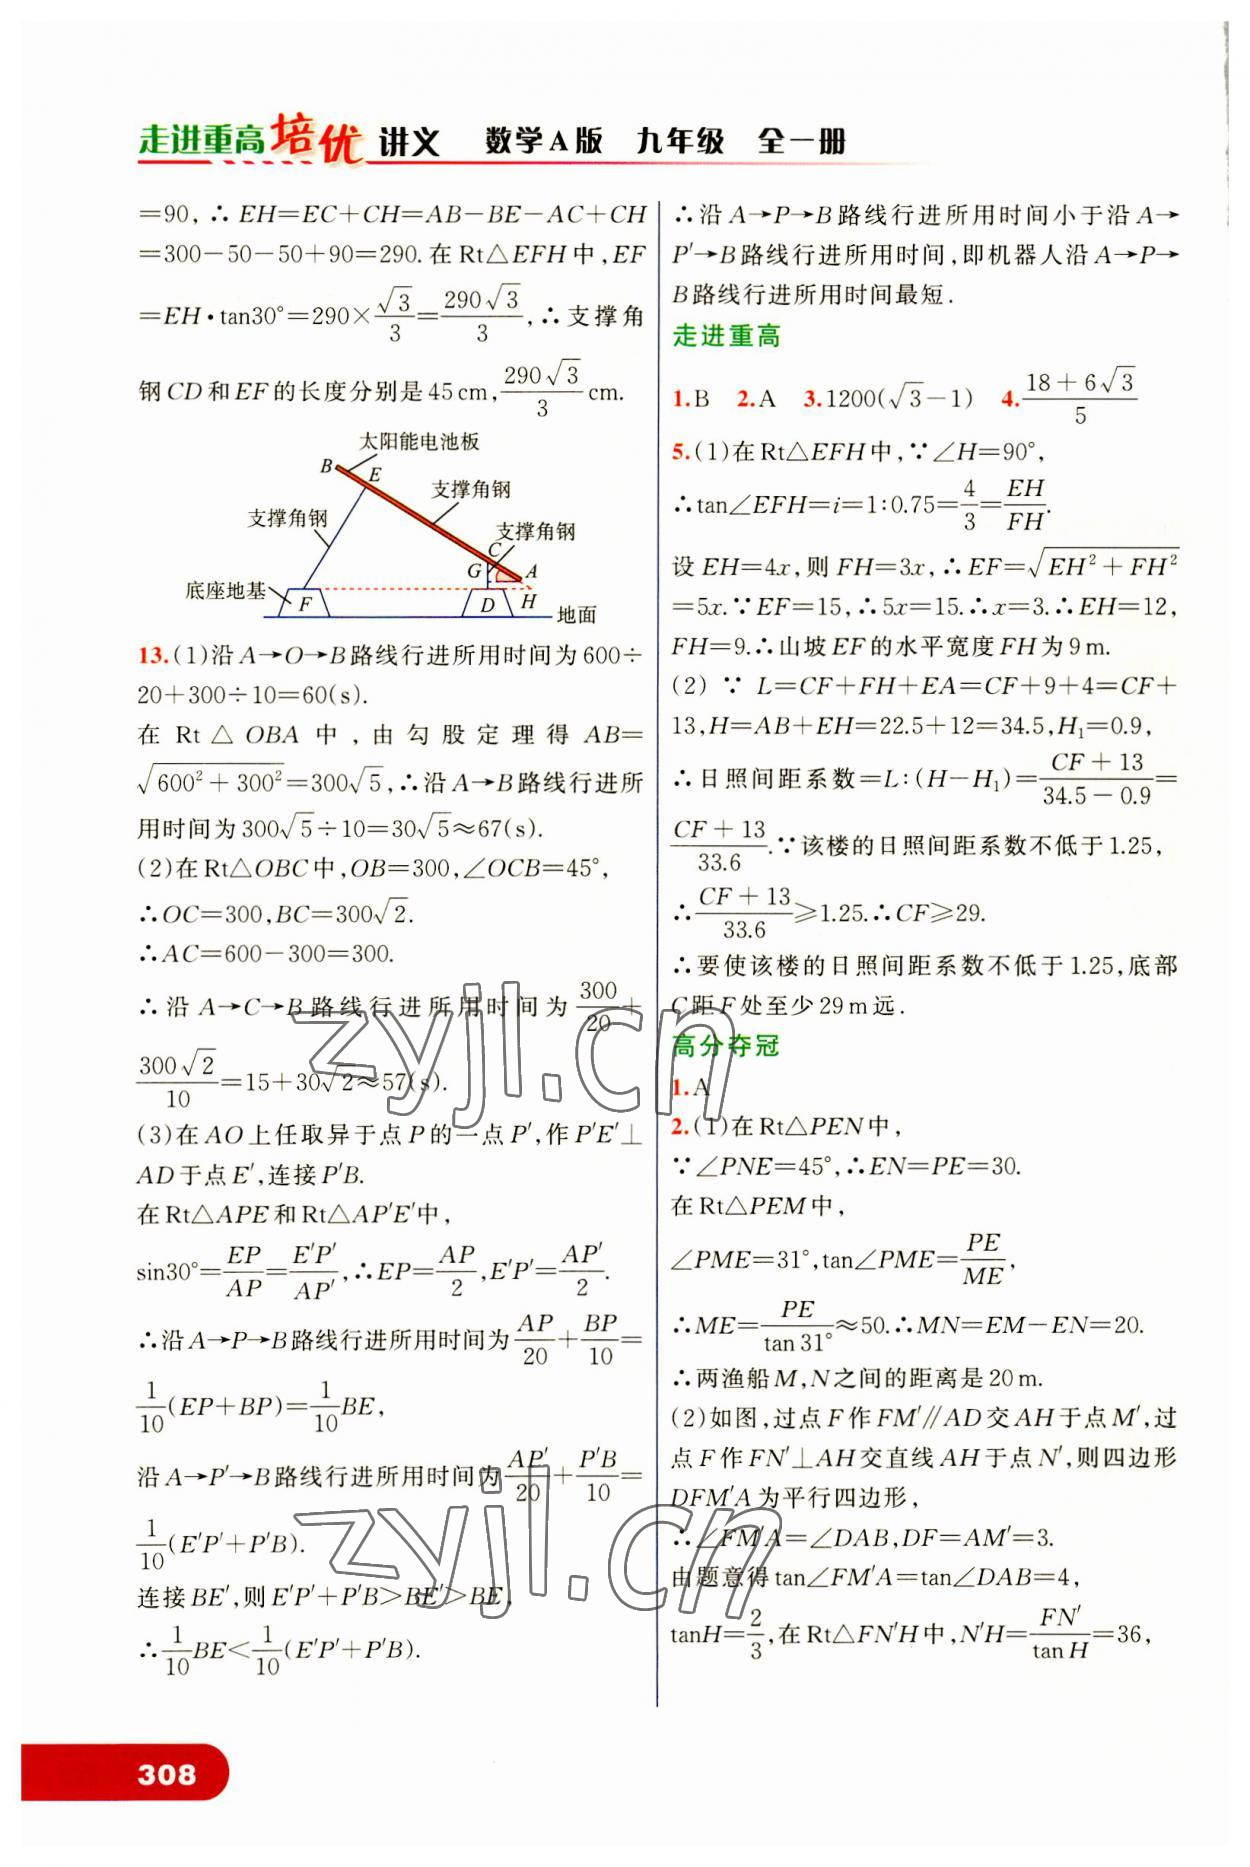 走进重高培优 讲义 数学A版 九年级 全一册
=90,∴EH=EC+CH=AB−BE−AC+CH
=300−50−50+90=290.在Rt△EFH中,EF
=EH·tan30°=290×√3/3=290√3/3,∴支撑角
钢CD和EF的长度分别是45cm,290√3/3 cm.
太阳能电池板
B E
支撑角钢
支撑角钢
C 支撑角钢
G A
底座地基
F D H
地面
13.(1)沿A→O→B路线行进所用时间为600÷
20+300÷10=60(s).
在Rt△OBA中,由勾股定理得AB=
√(600²+300²)=300√5,∴沿A→B路线行进所
用时间为300√5÷10=30√5≈67(s).
(2)在Rt△OBC中,OB=300,∠OCB=45°,
∴OC=300,BC=300√2.
∴AC=600−300=300.
∴沿A→C→B路线行进所用时间为300/20+
300√2/10=15+30√2≈57(s).
(3)在AO上任取异于点P的一点P′,作P′E′⊥
AD于点E′,连接P′B.
在Rt△APE和Rt△AP′E′中,
sin30°=EP/AP=E′P′/AP′,∴EP=AP/2,E′P′=AP′/2.
∴沿A→P→B路线行进所用时间为AP/20+BP/10=
1/10(EP+BP)=1/10BE,
沿A→P′→B路线行进所用时间为AP′/20+P′B/10=
1/10(E′P′+P′B).
连接BE′,则E′P′+P′B>BE′>BE,
∴1/10BE<1/10(E′P′+P′B).
∴沿A→P→B路线行进所用时间小于沿A→
P′→B路线行进所用时间,即机器人沿A→P→
B路线行进所用时间最短.
走进重高
1.B 2.A 3.1200(√3−1) 4.(18+6√3)/5
5.(1)在Rt△EFH中,∵∠H=90°,
∴tan∠EFH=i=1∶0.75=4/3=EH/FH.
设EH=4x,则FH=3x,∴EF=√(EH²+FH²)
=5x.∵EF=15,∴5x=15.∴x=3.∴EH=12,
FH=9.∴山坡EF的水平宽度FH为9m.
(2)∵L=CF+FH+EA=CF+9+4=CF+
13,H=AB+EH=22.5+12=34.5,H₁=0.9,
∴日照间距系数=L∶(H−H₁)=(CF+13)/(34.5−0.9)=
(CF+13)/33.6.∵该楼的日照间距系数不低于1.25,
∴(CF+13)/33.6≥1.25.∴CF≥29.
∴要使该楼的日照间距系数不低于1.25,底部
C距F处至少29m远.
高分夺冠
1.A
2.(1)在Rt△PEN中,
∵∠PNE=45°,∴EN=PE=30.
在Rt△PEM中,
∠PME=31°,tan∠PME=PE/ME,
∴ME=PE/tan31°≈50.∴MN=EM−EN=20.
∴两渔船M,N之间的距离是20m.
(2)如图,过点F作FM′∥AD交AH于点M′,过
点F作FN′⊥AH交直线AH于点N′,则四边形
DFM′A为平行四边形,
∴∠FM′A=∠DAB,DF=AM′=3.
由题意得tan∠FM′A=tan∠DAB=4,
tanH=2/3,在Rt△FN′H中,N′H=FN′/tanH=36,
308
zyjl.cn
zyjl.cn